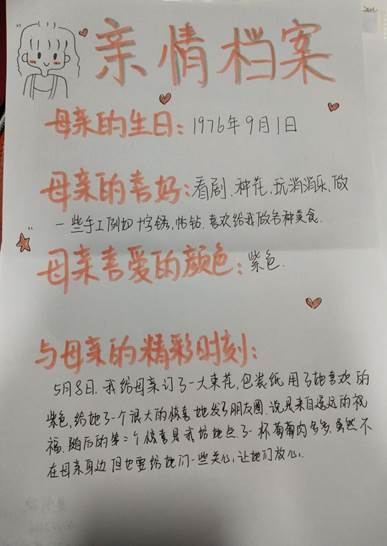 亲情档案
母亲的生日:1976年9月1日
母亲的喜好:看剧、种花、玩消消乐、做
一些手工例如十字绣,帖钻,喜欢给我做各种美食.
母亲喜爱的颜色:紫色.
与母亲的精彩时刻:
5月8日,我给母亲订了一大束花,包装纸用了她喜欢的
紫色,给她了一个很大的惊喜她发了朋友圈,说是来自遥远的祝
福,随后的第二个惊喜是我给她点了一杯葡萄肉多多,虽然不
在母亲身边但也要给她们一些关心,让她们放心.